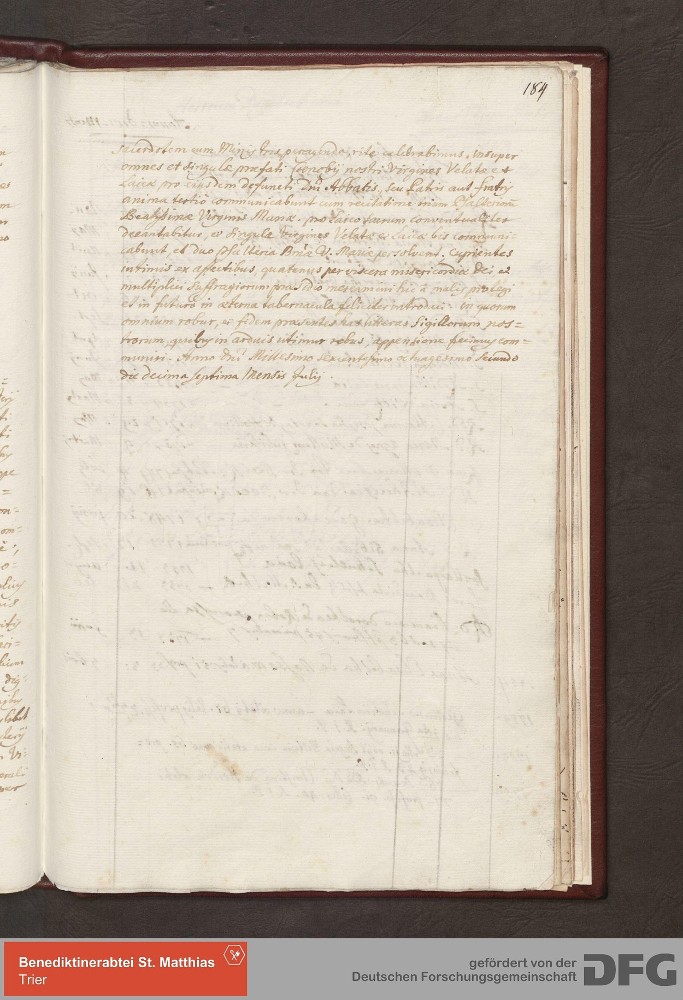 184
sacerdotem cum Ministris peragendo, rite celebrabimus, insuper
omnes et singulæ præfati Coenobij nostri Virgines Velatæ et
Laicæ pro eiusdem defuncti Dni Abbatis, seu Patris aut fratris
anima tertio communicabunt cum recitatione trium Psalteriorum
Beatissimæ Virginis Mariæ. pro Laico
decantabitur, et singulæ Virgines Velatæ et Laicæ bis communi-
cabunt, et duo psalteria Btæ V. Mariæ persolvent. Cupientes
intimis ex affectibus, quatenus per viscera misericordiæ Dei et
multiplici suffragiorum præsidio mereamini hic à malis protegi
et in futuro in æterna tabernacula feliciter introduci: in quorum
omnium robur, et fidem præsentes has litteras Sigillorum nos-
trorum, quibus in arduis utimur rebus, appensione fecimus com-
muniri. Anno dni Millesimo sexcentesimo octuagesimo secundo
die decima septima Mensis Julij.
Benediktinerabtei St. Matthias
Trier
gefördert von der
Deutschen Forschungsgemeinschaft
DFG